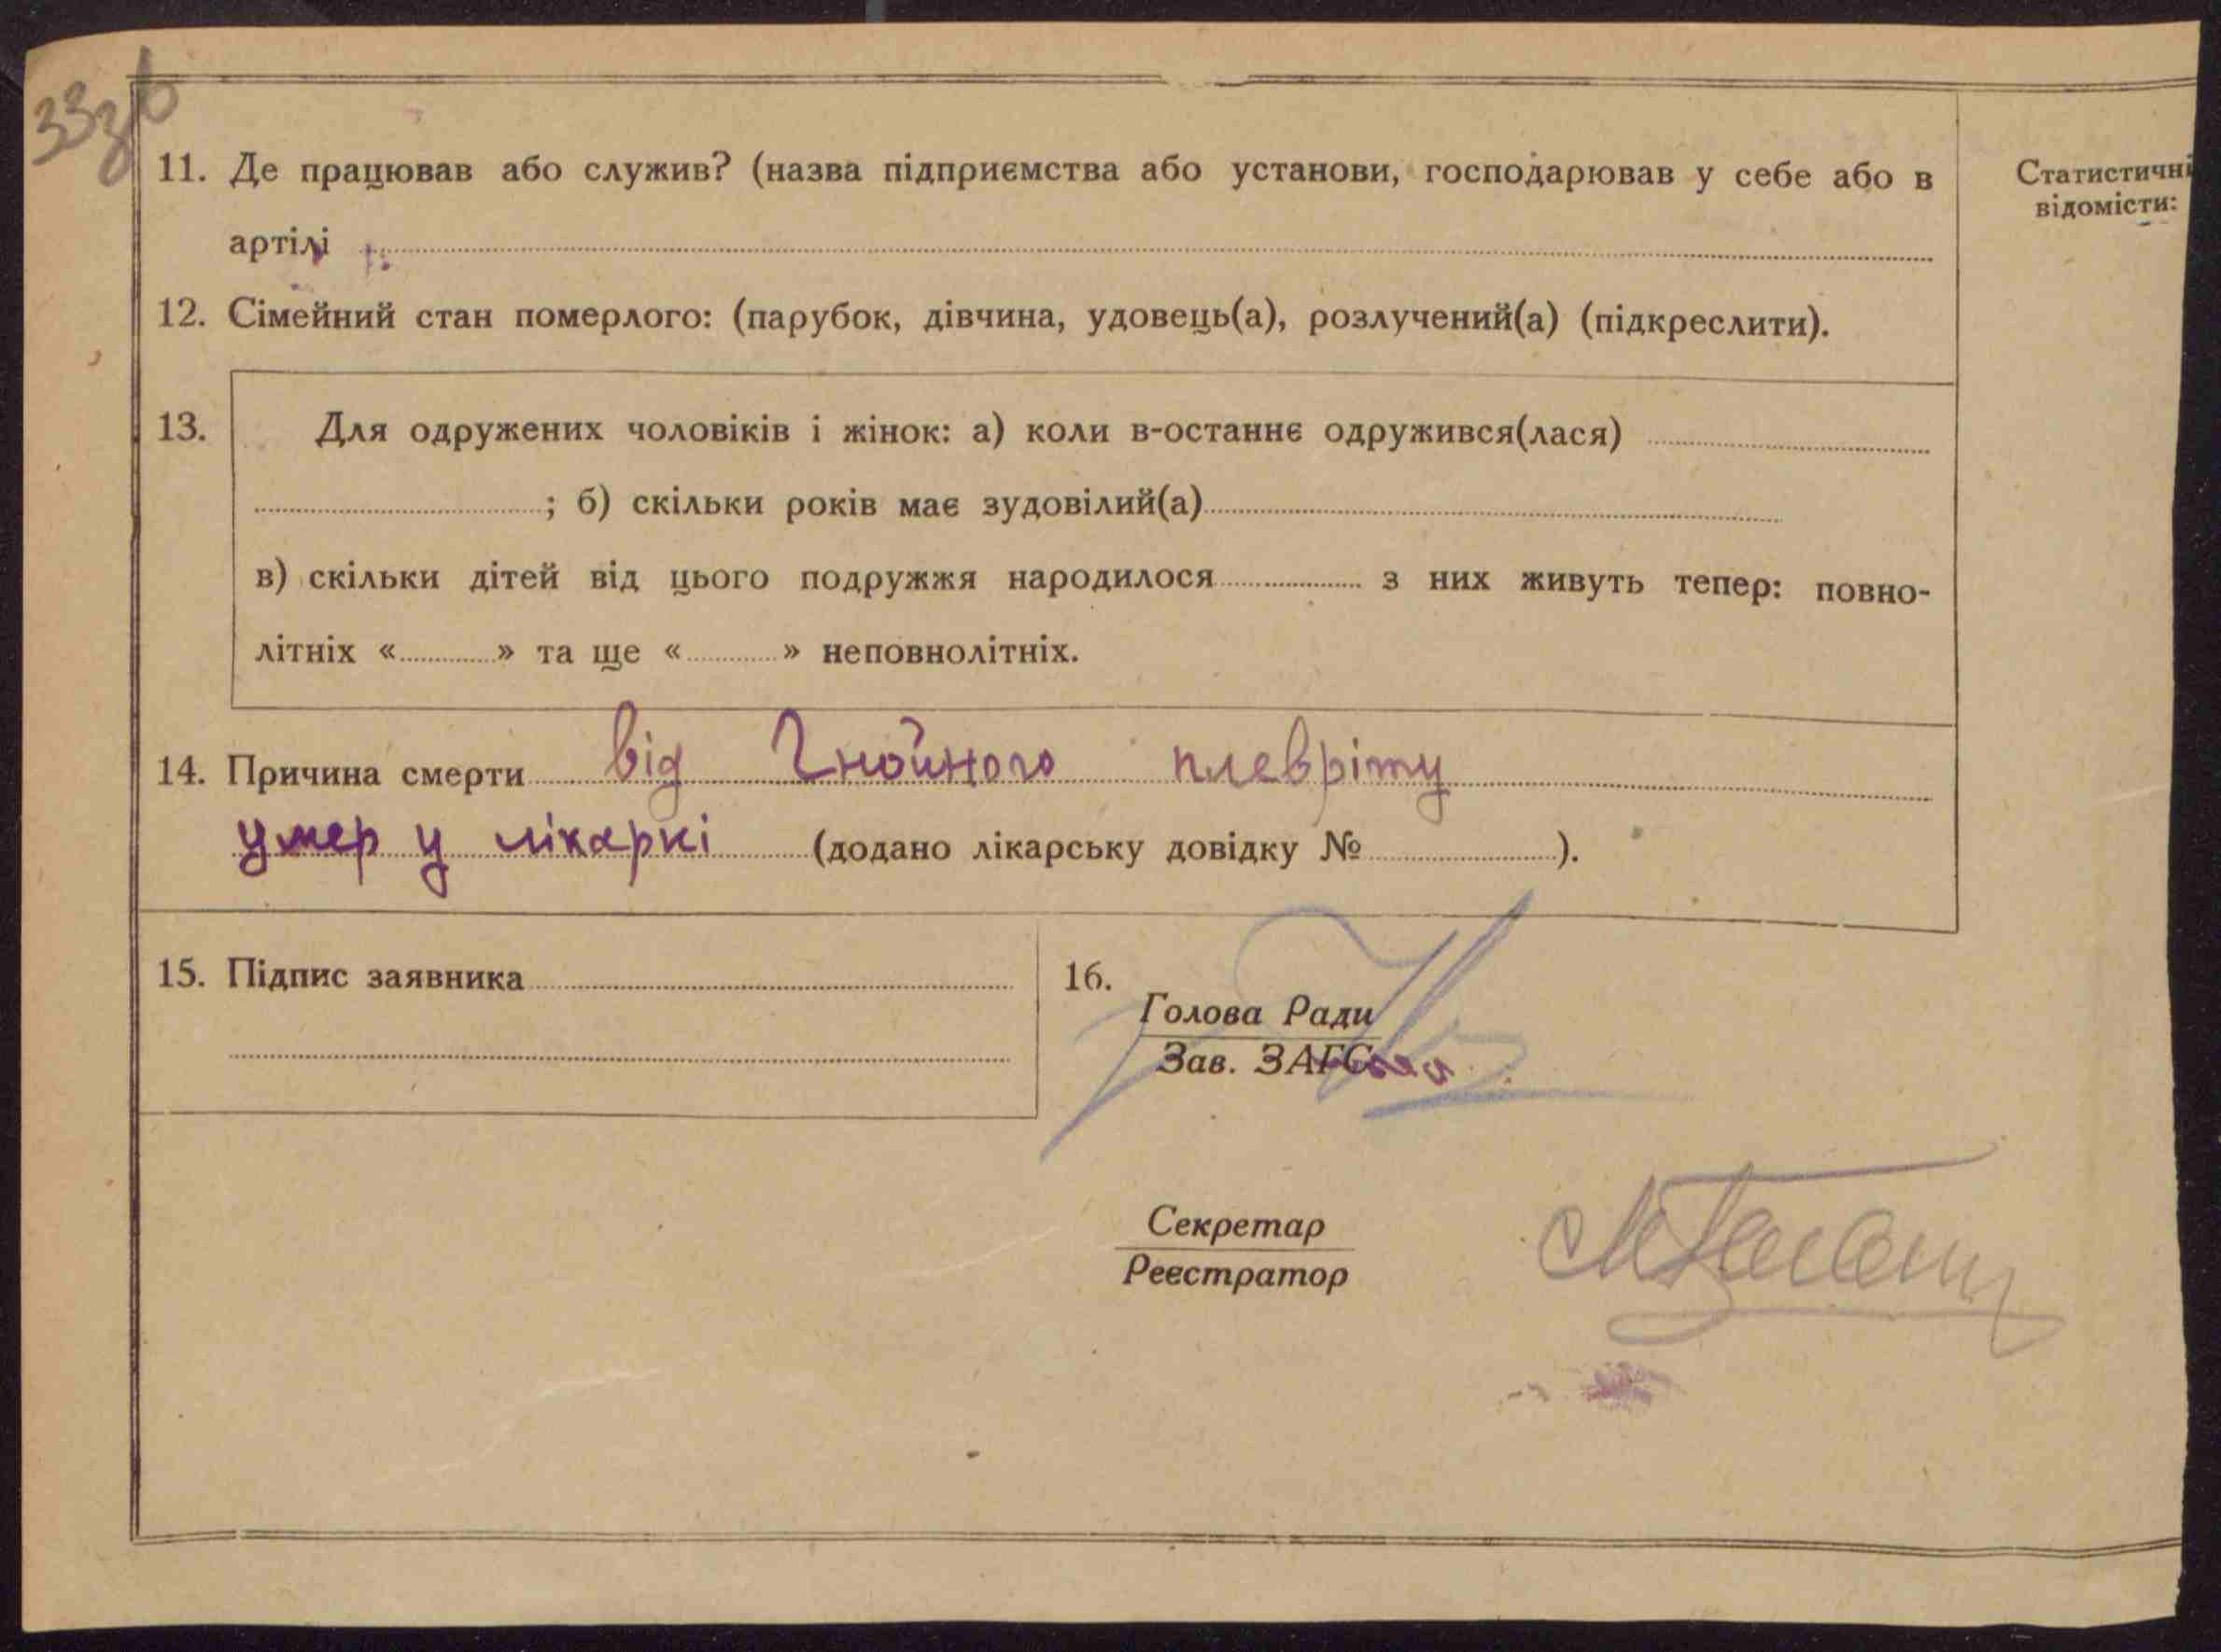 33зв
11. Де працював або служив? (назва підприємства або установи, господарював у себе або в
артілі
Статистичні
відомісти:
12. Сімейний стан померлого: (парубок, дівчина, удовець(а), розлучений(а) (підкреслити).
13. Для одружених чоловіків і жінок: а) коли в-останнє одружився(лася)
; б) скільки років має зудовілий(а)
в) скільки дітей від цього подружжя народилося з них живуть тепер: повно-
літніх « » та ще « » неповнолітніх.
14. Причина смерти від Гнойного плевріту
умер у лікаркі (додано лікарську довідку № ).
15. Підпис заявника
16.
Голова Ради
Зав. ЗАГС
Секретар
Реєстратор